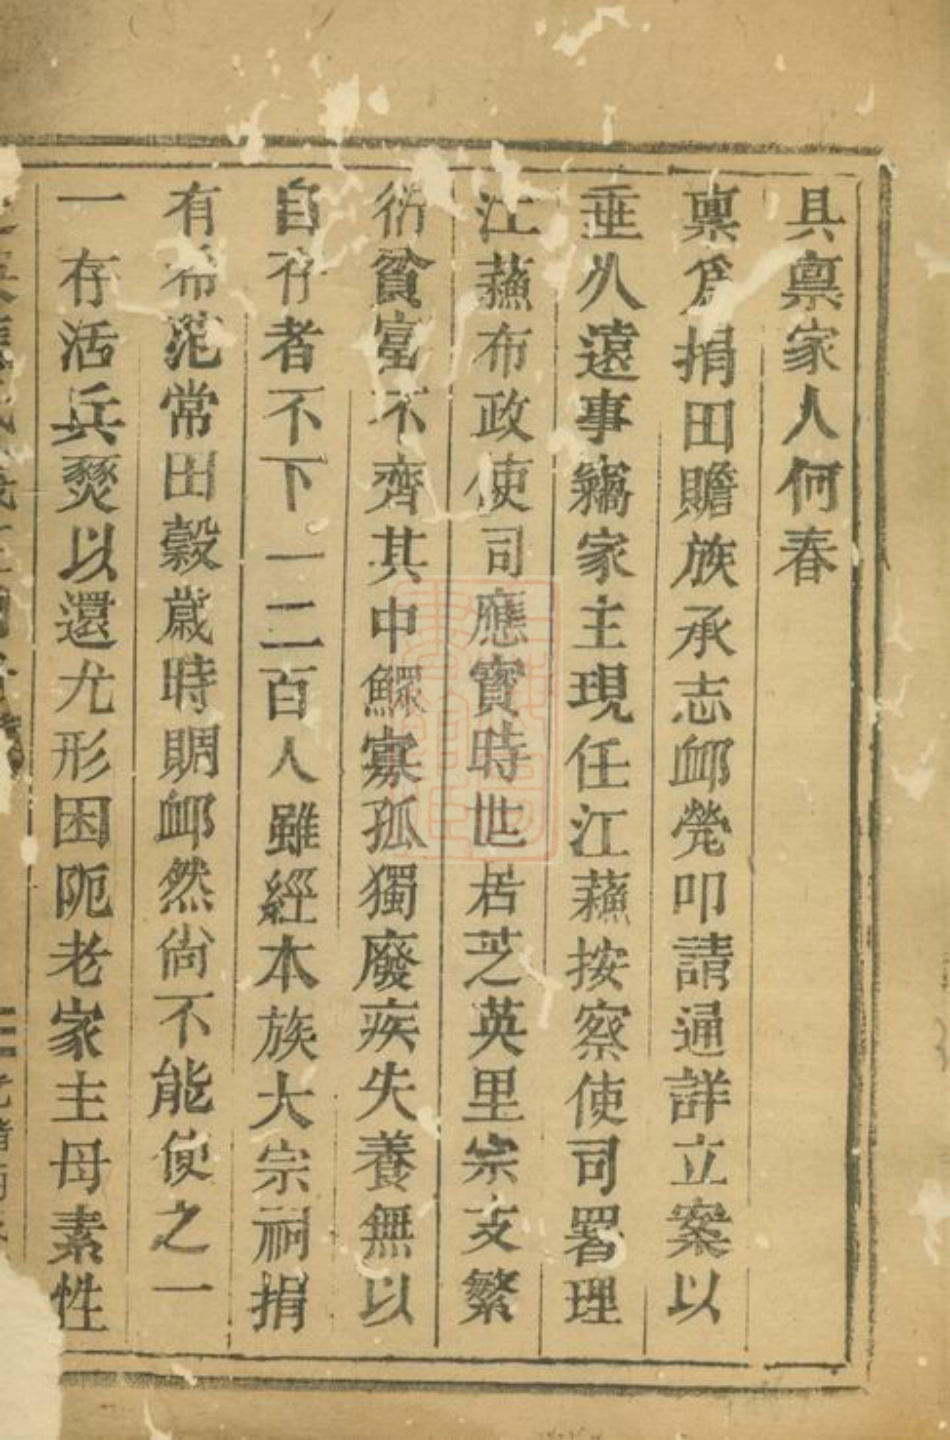 具禀家人何春
禀爲捐田贍族承志衈煢叩請通詳立案以
垂久遠事竊家主現任江蘓按察使司署理
江蘓布政使司應寶時世居芝英里宗支繁
衍貧富不齊其中鰥寡孤獨廢疾失養無以
自存者不下一二百人雖經本族大宗祠捐
有希范常田穀歲時賙衈然尙不能使之一
一存活兵燹以還尤形困阨老家主母素性